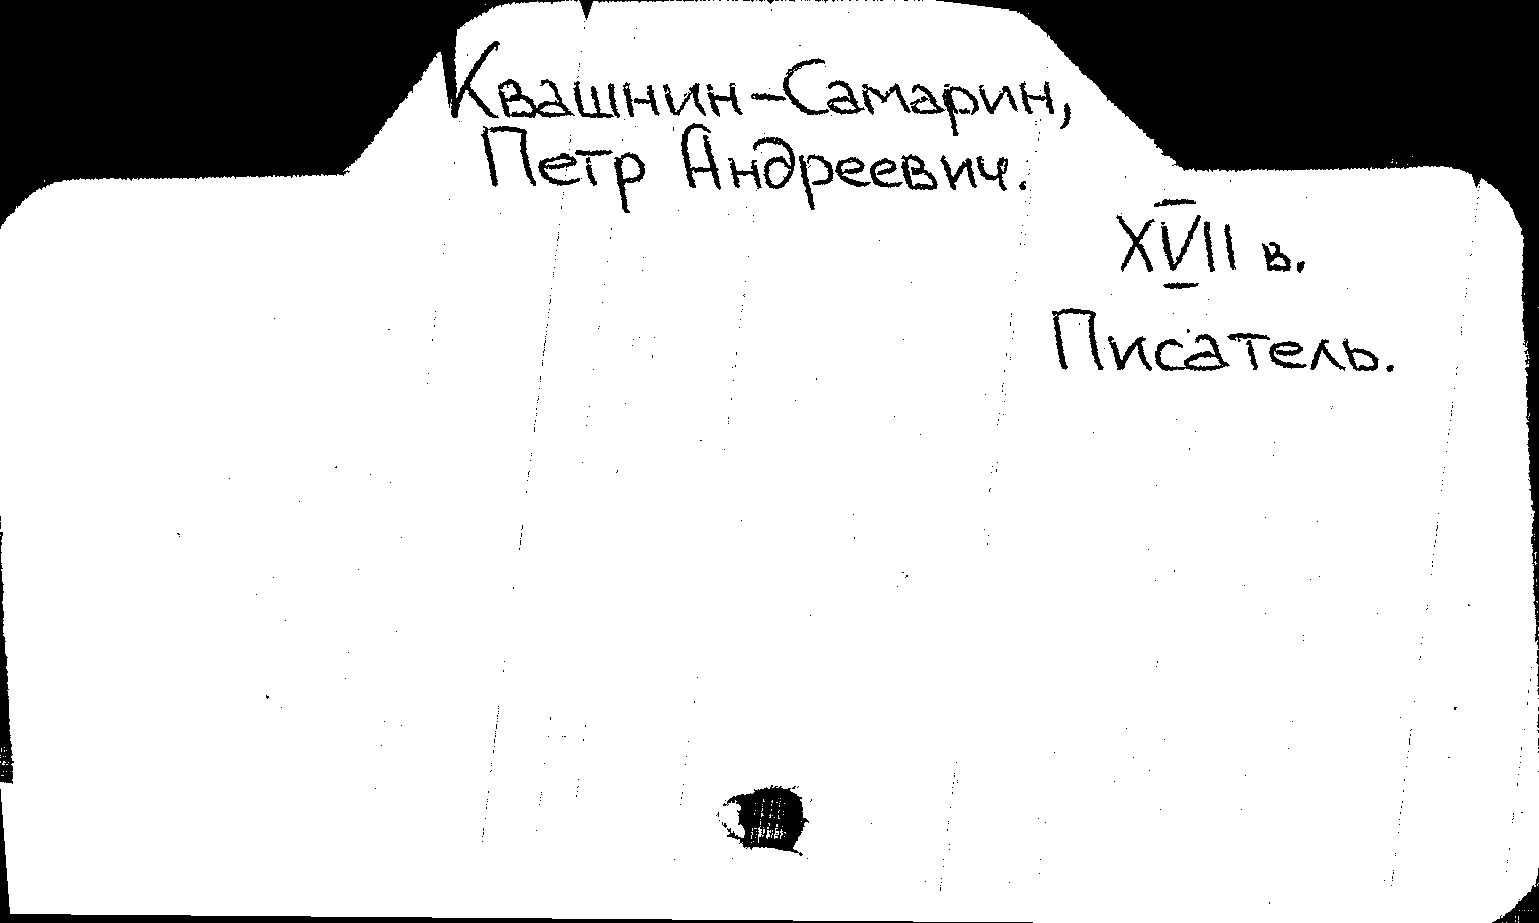 Квашнин-Самарин,
Петр Андреевич.
XVII в.
Писатель.